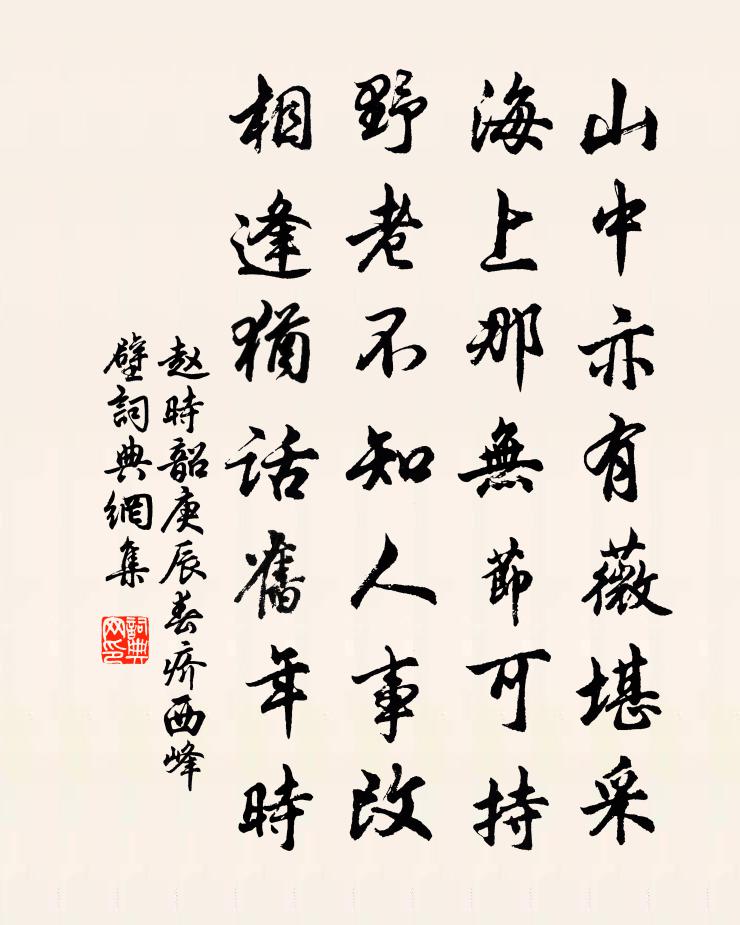 山中亦有薇堪采
海上那無節可持
野老不知人事改
相逢猶話舊年時
赵時韶庚辰春疥西峰
壁詞典網集
詞典网印